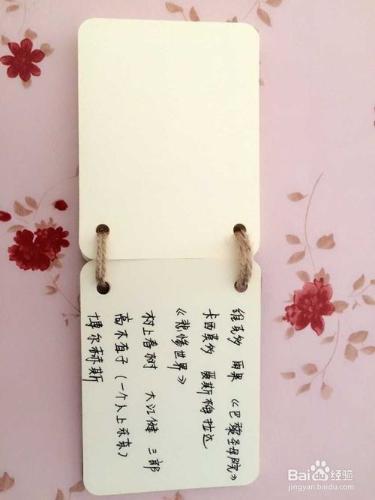 维克多 雨果 《巴黎圣母院》
卡西莫多 爱斯梅拉达
《悲惨世界》
村上春树 大江健 三郎
高木直子 (一个人上东京)
博尔赫斯
Baidu 经验
jingyan.baidu.com